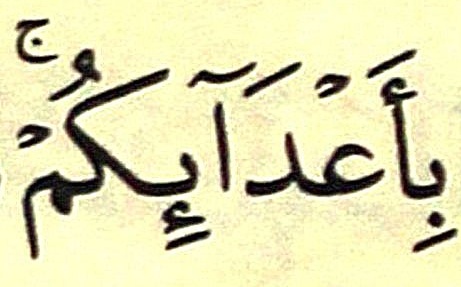 بِأَعْدَآئِكُمْ ۚ